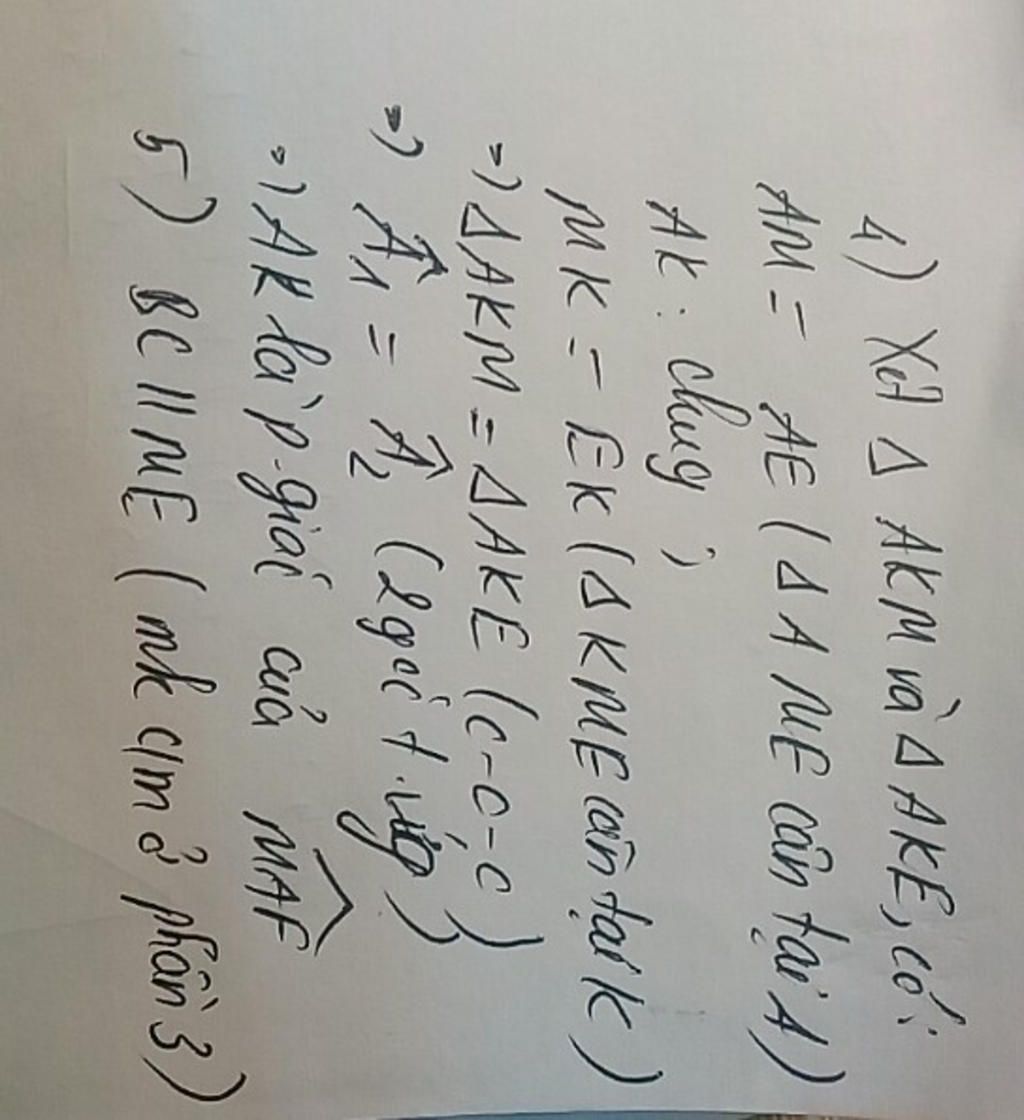 4) Xét Δ AKM và Δ AKE, có:
AM = AE (Δ AME cân tại A)
AK: chug;
MK = EK (Δ KME cân tại K)
=> Δ AKM = Δ AKE (c-c-c)
=> Â1 = Â2 (2 góc t.ứg)
=> AK là p.giác của MAE
5) BC // ME (mk c/m ở phần 3)